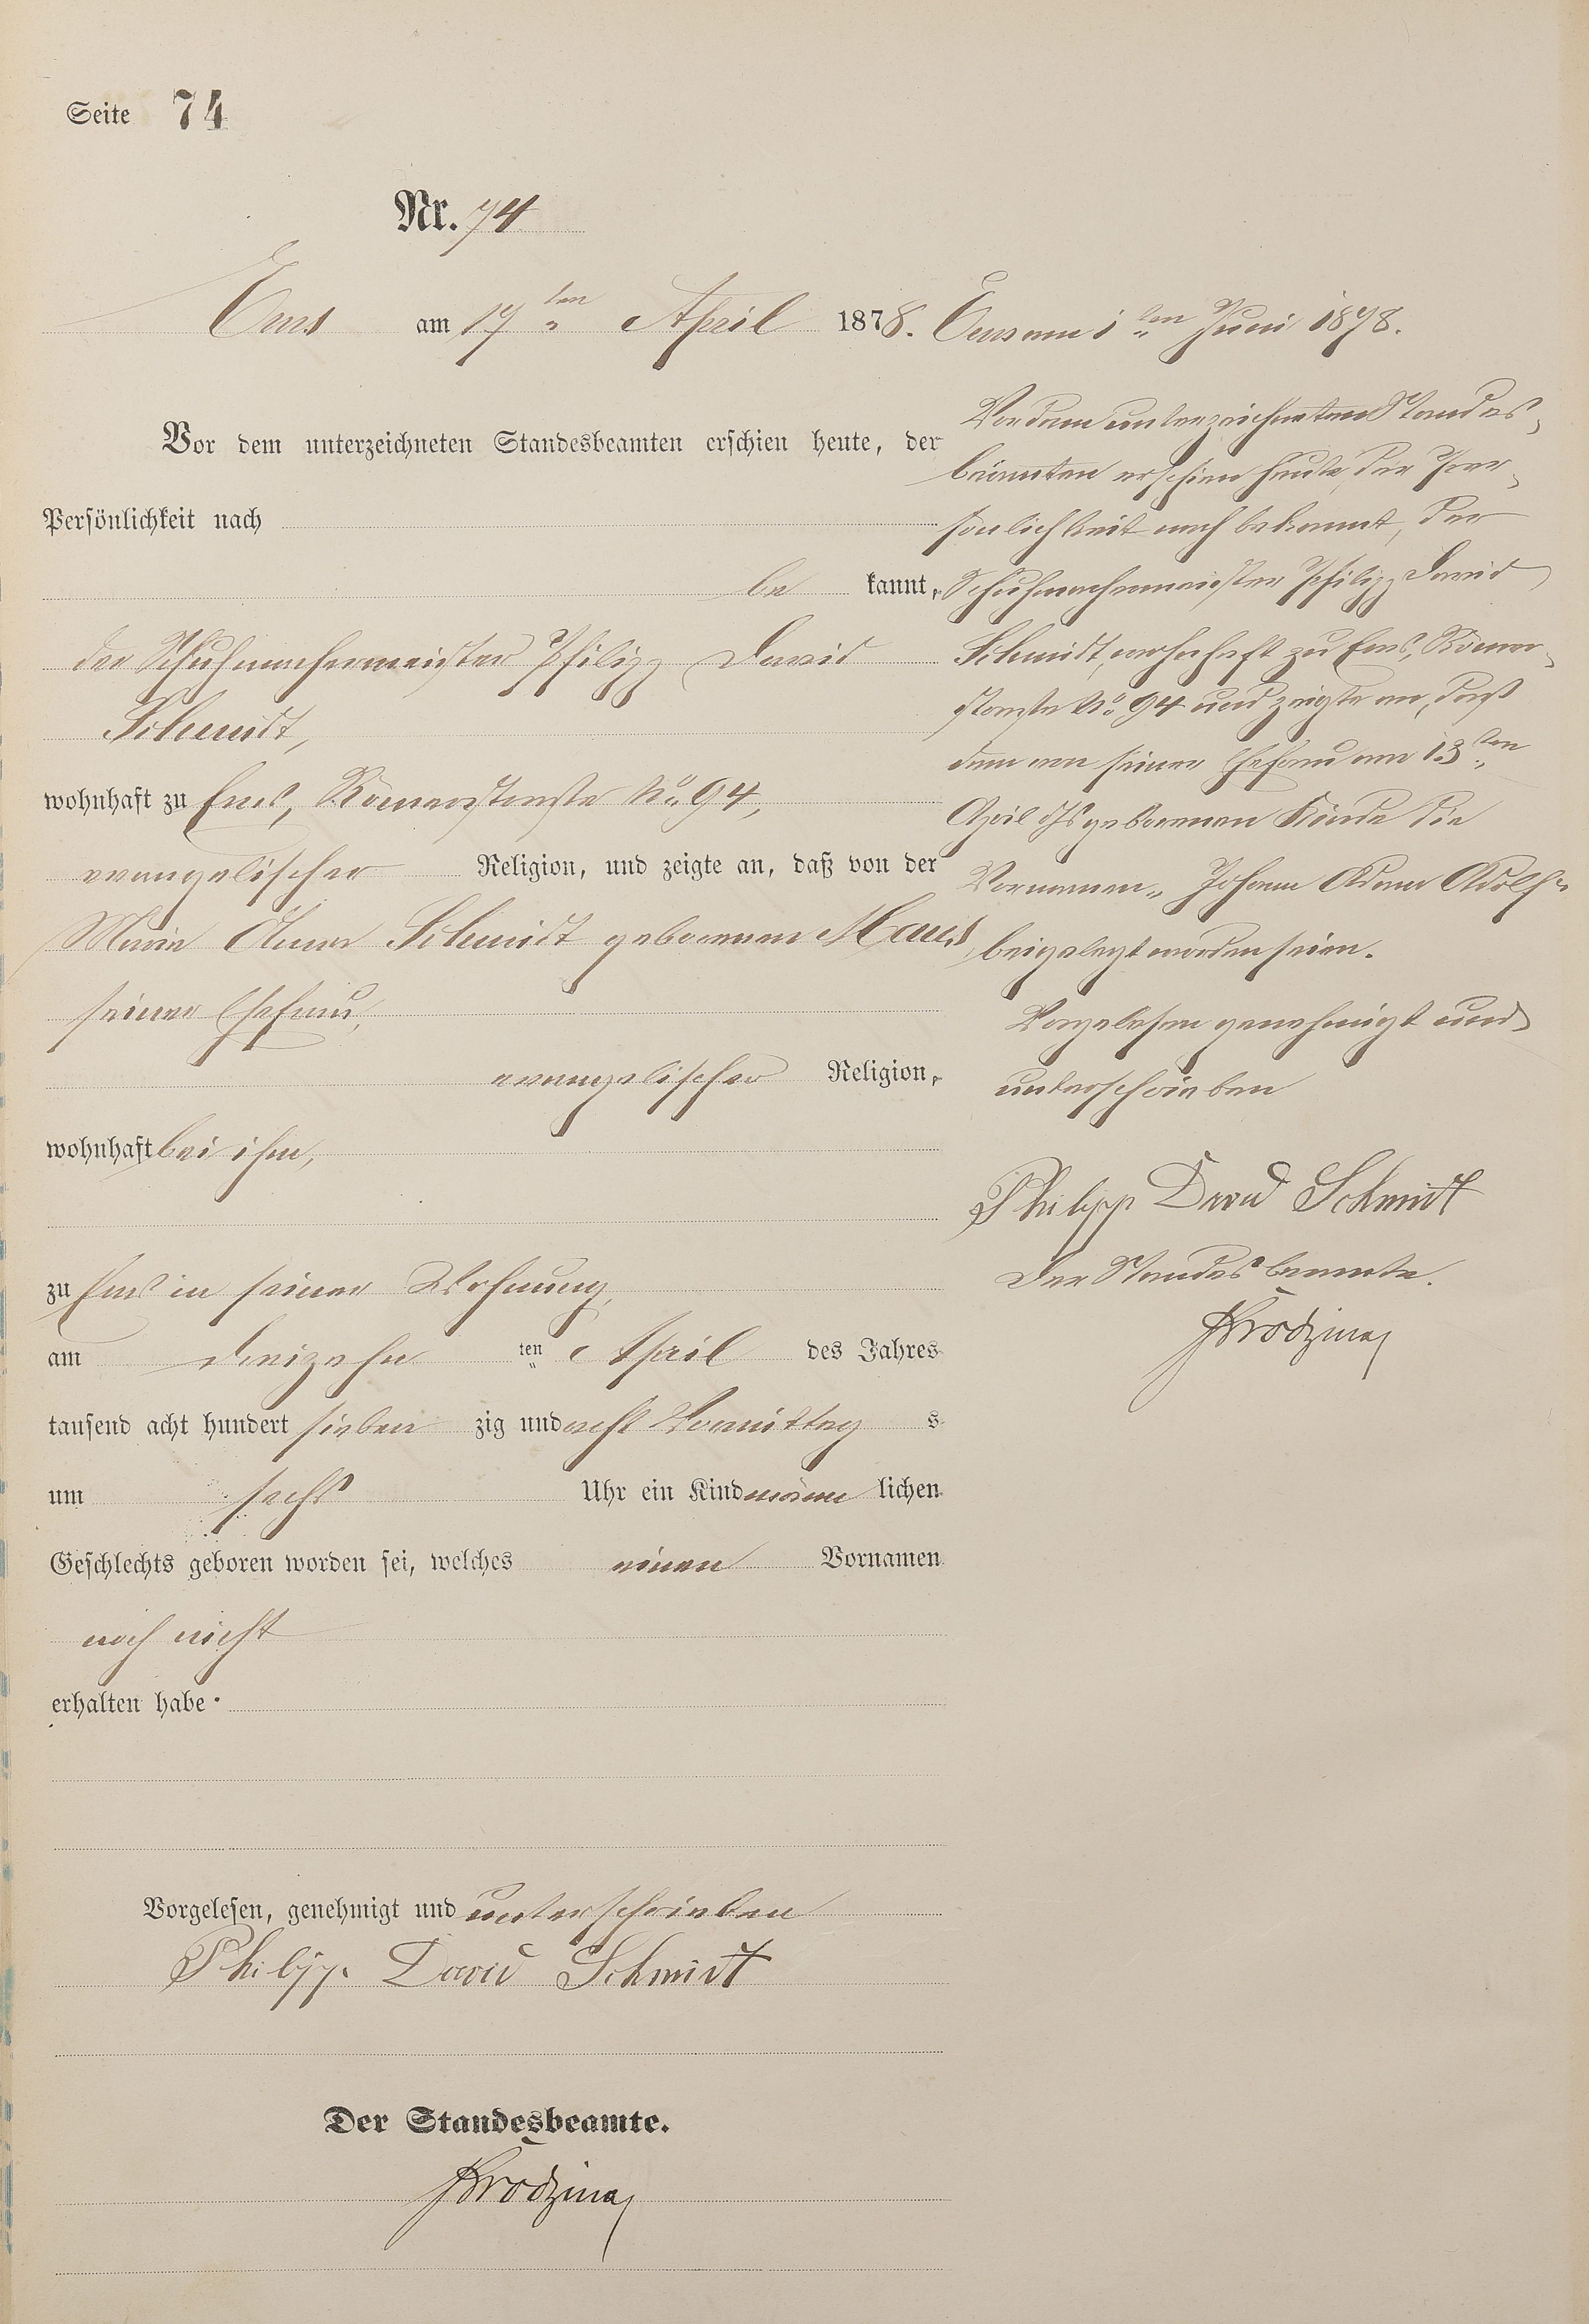 Seite 74
Nr. 74
Ems am 17ten April 1878.
Vor dem unterzeichneten Standesbeamten erschien heute, der
Persönlichkeit nach
be kannt,
der Schuhmachermeister Philipp David
Schmidt,
wohnhaft zu Ems, Römerstraße No. 94,
evangelischer Religion, und zeigte an, daß von der
Marie Anna Schmidt geborenen Haus,
seiner Ehefrau,
evangelischer Religion,
wohnhaft bei ihm,
zu Ems in seiner Wohnung,
am dreizehn ten April des Jahres
tausend acht hundert sieben zig und acht Vormittag s
um sechs Uhr ein Kind männ lichen
Geschlechts geboren worden sei, welches einen Vornamen
noch nicht
erhalten habe.
Vorgelesen, genehmigt und unterschrieben
Philipp David Schmidt
Der Standesbeamte.
Ems am 1ten Juni 1878.
Vor dem unterzeichneten Standes-
beamten erschien heute, der Per-
sönlichkeit nach bekannt, der
Schuhmachermeister Philipp David
Schmidt, wohnhaft zu Ems, Römer-
straße No. 94 und zeigte an, daß
dem von seiner Ehefrau am 13ten
April dJs geborenen Kinde die
Vornamen „Johann Adam Adolf“
beigelegt worden seien.
Vorgelesen genehmigt und
unterschrieben
Philipp David Schmidt
Der Standesbeamte.